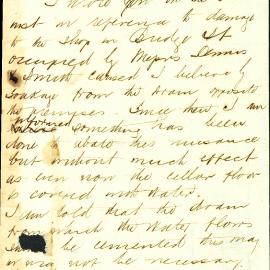 I wrote you on the
inst in reference to damage
to the shop in Bridge St
occupied by Messrs Dennis
& Smith caused I believe by
soaking from the drain opposite
the premises. Since then I am
informed something has been
done to abate this nuisance
but without much effect
as even now the cellar floor
is covered with water.
I am told that the drain
from which the water flows
be cemented this may
or may not be necessary.